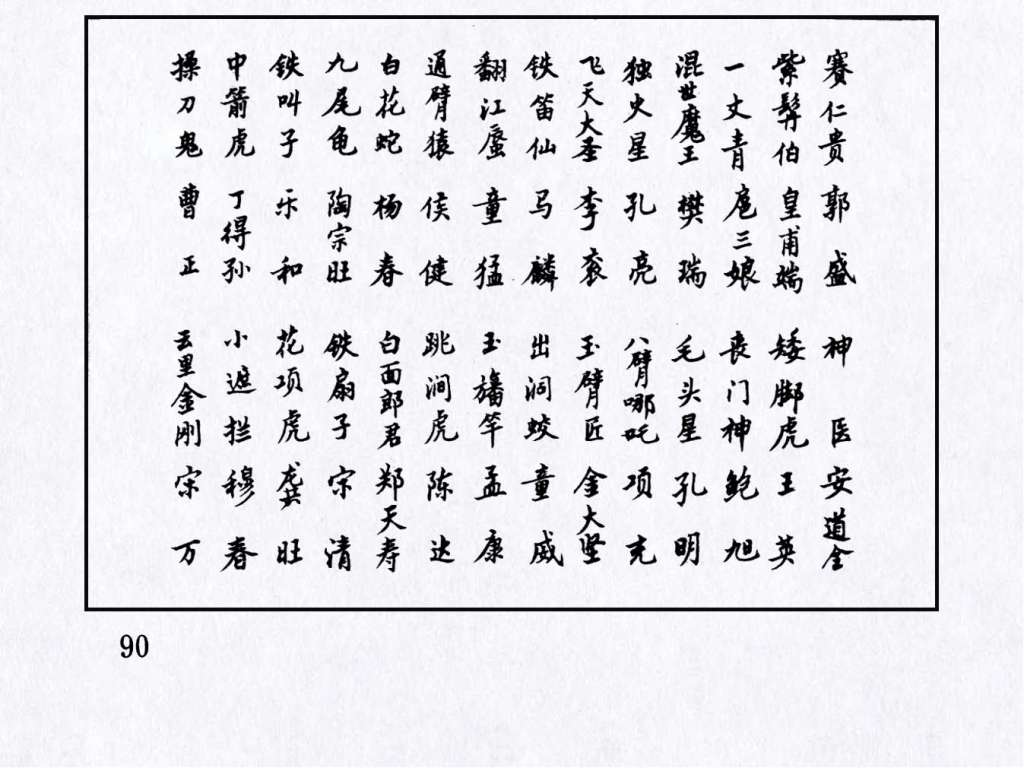 赛仁贵 郭盛 神医 安道全
紫髯伯 皇甫端 矮脚虎 王英
一丈青 扈三娘 丧门神 鲍旭
混世魔王 樊瑞 毛头星 孔明
独火星 孔亮 八臂哪吒 项充
飞天大圣 李衮 玉臂匠 金大坚
铁笛仙 马麟 出洞蛟 童威
翻江蜃 童猛 玉旛竿 孟康
通臂猿 侯健 跳涧虎 陈达
白花蛇 杨春 白面郎君 郑天寿
九尾龟 陶宗旺 铁扇子 宋清
铁叫子 乐和 花项虎 龚旺
中箭虎 丁得孙 小遮拦 穆春
操刀鬼 曹正 云里金刚 宋万
90